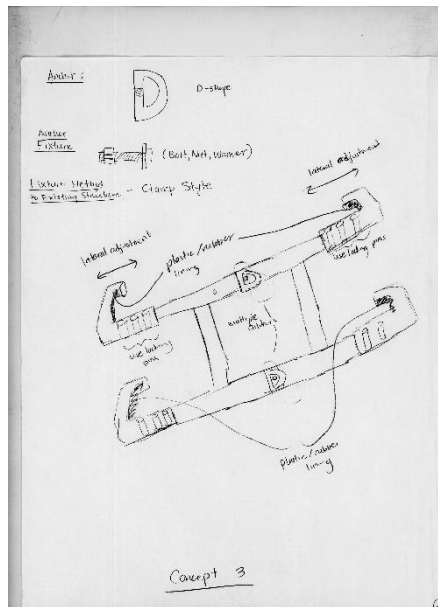 Anchor :
D-shape
Anchor
Fixture
(Bolt, Nut, Washer)
Fixture Method
to Existing Structure - Clamp Style
lateral adjustment
lateral adjustment
plastic/rubber
lining
use locking
pins
use locking
pins
multiple
plastic/rubber
lining
Concept 3